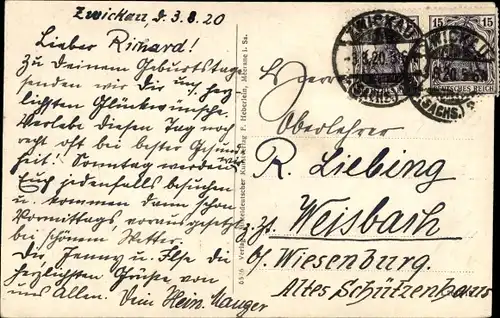 Zwickau, d. 3.8.20
Lieber Richard!
Zu Deinem Geburtstage
senden wir Dir uns. herz-
lichsten Glückwünsche.
Verlebe diesen Tag noch
recht oft bei bester Gesund-
heit! Sonntag werden wir
Euch jedenfalls besuchen
u. kommen dann schon
Vormittags, vorausgesetzt
bei schönem Wetter.
Dir, Jenny u. Ilse die
herzlichsten Grüße von
uns Allen. Dein Hein.
6576 Verlag P. Heberlein, Meerane i. Sa.
ZWICKAU
-3.8.20
(SACHS.)
15
DEUTSCHES REICH
15
ZWICKAU
8.20
(SACHS.)
Herrn
Oberlehrer
R. Liebing
z. Zt. Weisbach
b/ Wiesenburg.
Altes Schützenhaus